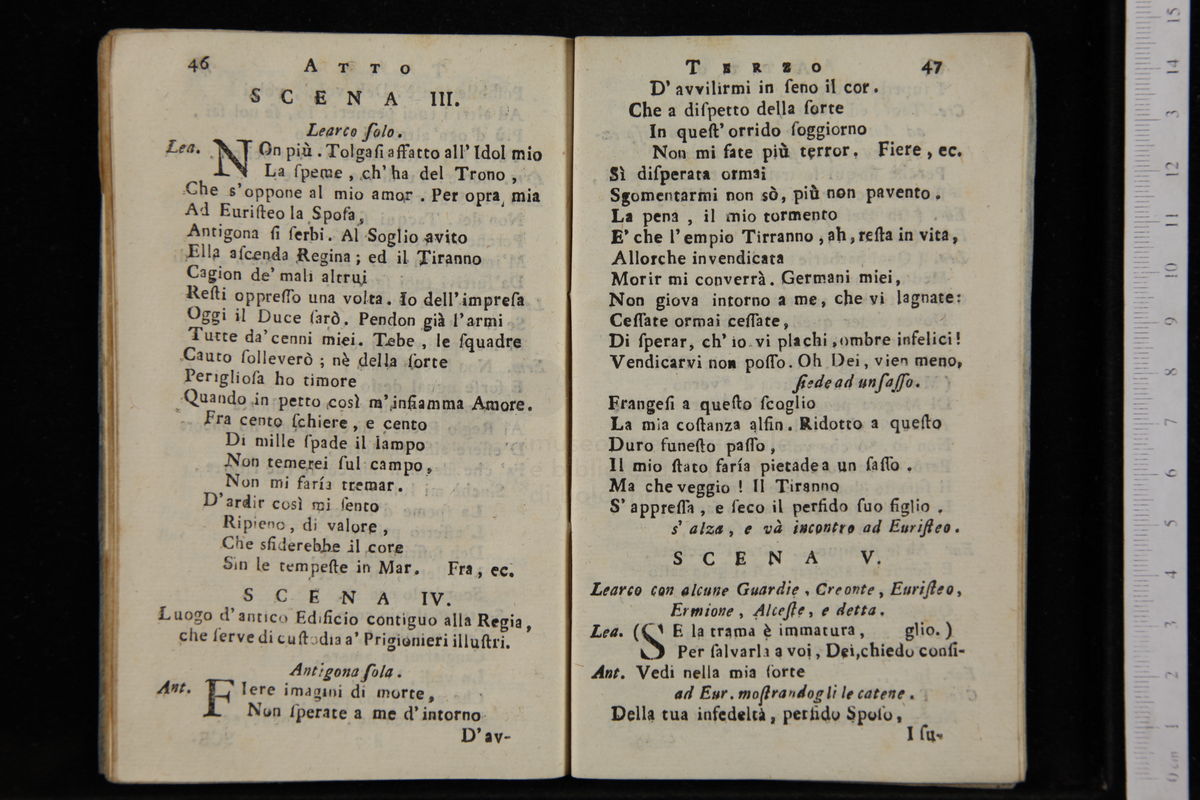 46 ATTO
SCENA III.
Learco ſolo.
Lea. NOn più. Tolgaſi affatto all' Idol mio
La ſpeme, ch' ha del Trono,
Che s'oppone al mio amor. Per opra mia
Ad Euriſteo la Spoſa,
Antigona ſi ſerbi. Al Soglio avito
Ella aſcenda Regina; ed il Tiranno
Cagion de' mali altrui
Reſti oppreſſo una volta. Io dell' impreſa
Oggi il Duce ſarò. Pendon già l'armi
Tutte da' cenni miei. Tebe, le ſquadre
Cauto ſolleverò; nè della ſorte
Periglioſa ho timore
Quando in petto così m' infiamma Amore.
Fra cento ſchiere, e cento
Di mille ſpade il lampo
Non temerei ſul campo,
Non mi faría tremar.
D'ardir così mi ſento
Ripieno, di valore,
Che sfiderebbe il core
Sin le tempeſte in Mar. Fra, ec.
SCENA IV.
Luogo d'antico Edificio contiguo alla Regia,
che ſerve di cuſtodia a' Prigionieri illuſtri.
Antigona ſola.
Ant. FIere imagini di morte,
Non ſperate a me d'intorno
D'av-
TERZO 47
D' avvilirmi in ſeno il cor.
Che a diſpetto della ſorte
In queſt' orrido ſoggiorno
Non mi fate più terror. Fiere, ec.
Sì diſperata ormai
Sgomentarmi non sò, più non pavento.
La pena, il mio tormento
E' che l' empio Tirranno, ah, reſta in vita,
Allorche invendicata
Morir mi converrà. Germani miei,
Non giova intorno a me, che vi lagnate:
Ceſſate ormai ceſſate,
Di ſperar, ch' io vi plachi, ombre infelici!
Vendicarvi non poſſo. Oh Dei, vien meno,
ſiede ad un ſaſſo.
Frangeſi a queſto ſcoglio
La mia coſtanza alfin. Ridotto a queſto
Duro funeſto paſſo,
Il mio ſtato faría pietade a un ſaſſo.
Ma che veggio! Il Tiranno
S' appreſſa, e ſeco il perfido ſuo figlio.
s' alza, e và incontro ad Euriſteo.
SCENA V.
Learco con alcune Guardie, Creonte, Euriſteo,
Ermione, Alceſte, e detta.
Lea. (SE la trama è immatura, glio.)
Per ſalvarla a voi, Dei, chiedo conſi-
Ant. Vedi nella mia ſorte
ad Eur. moſtrandogli le catene.
Della tua infedeltà, perfido Spoſo,
I ſu-